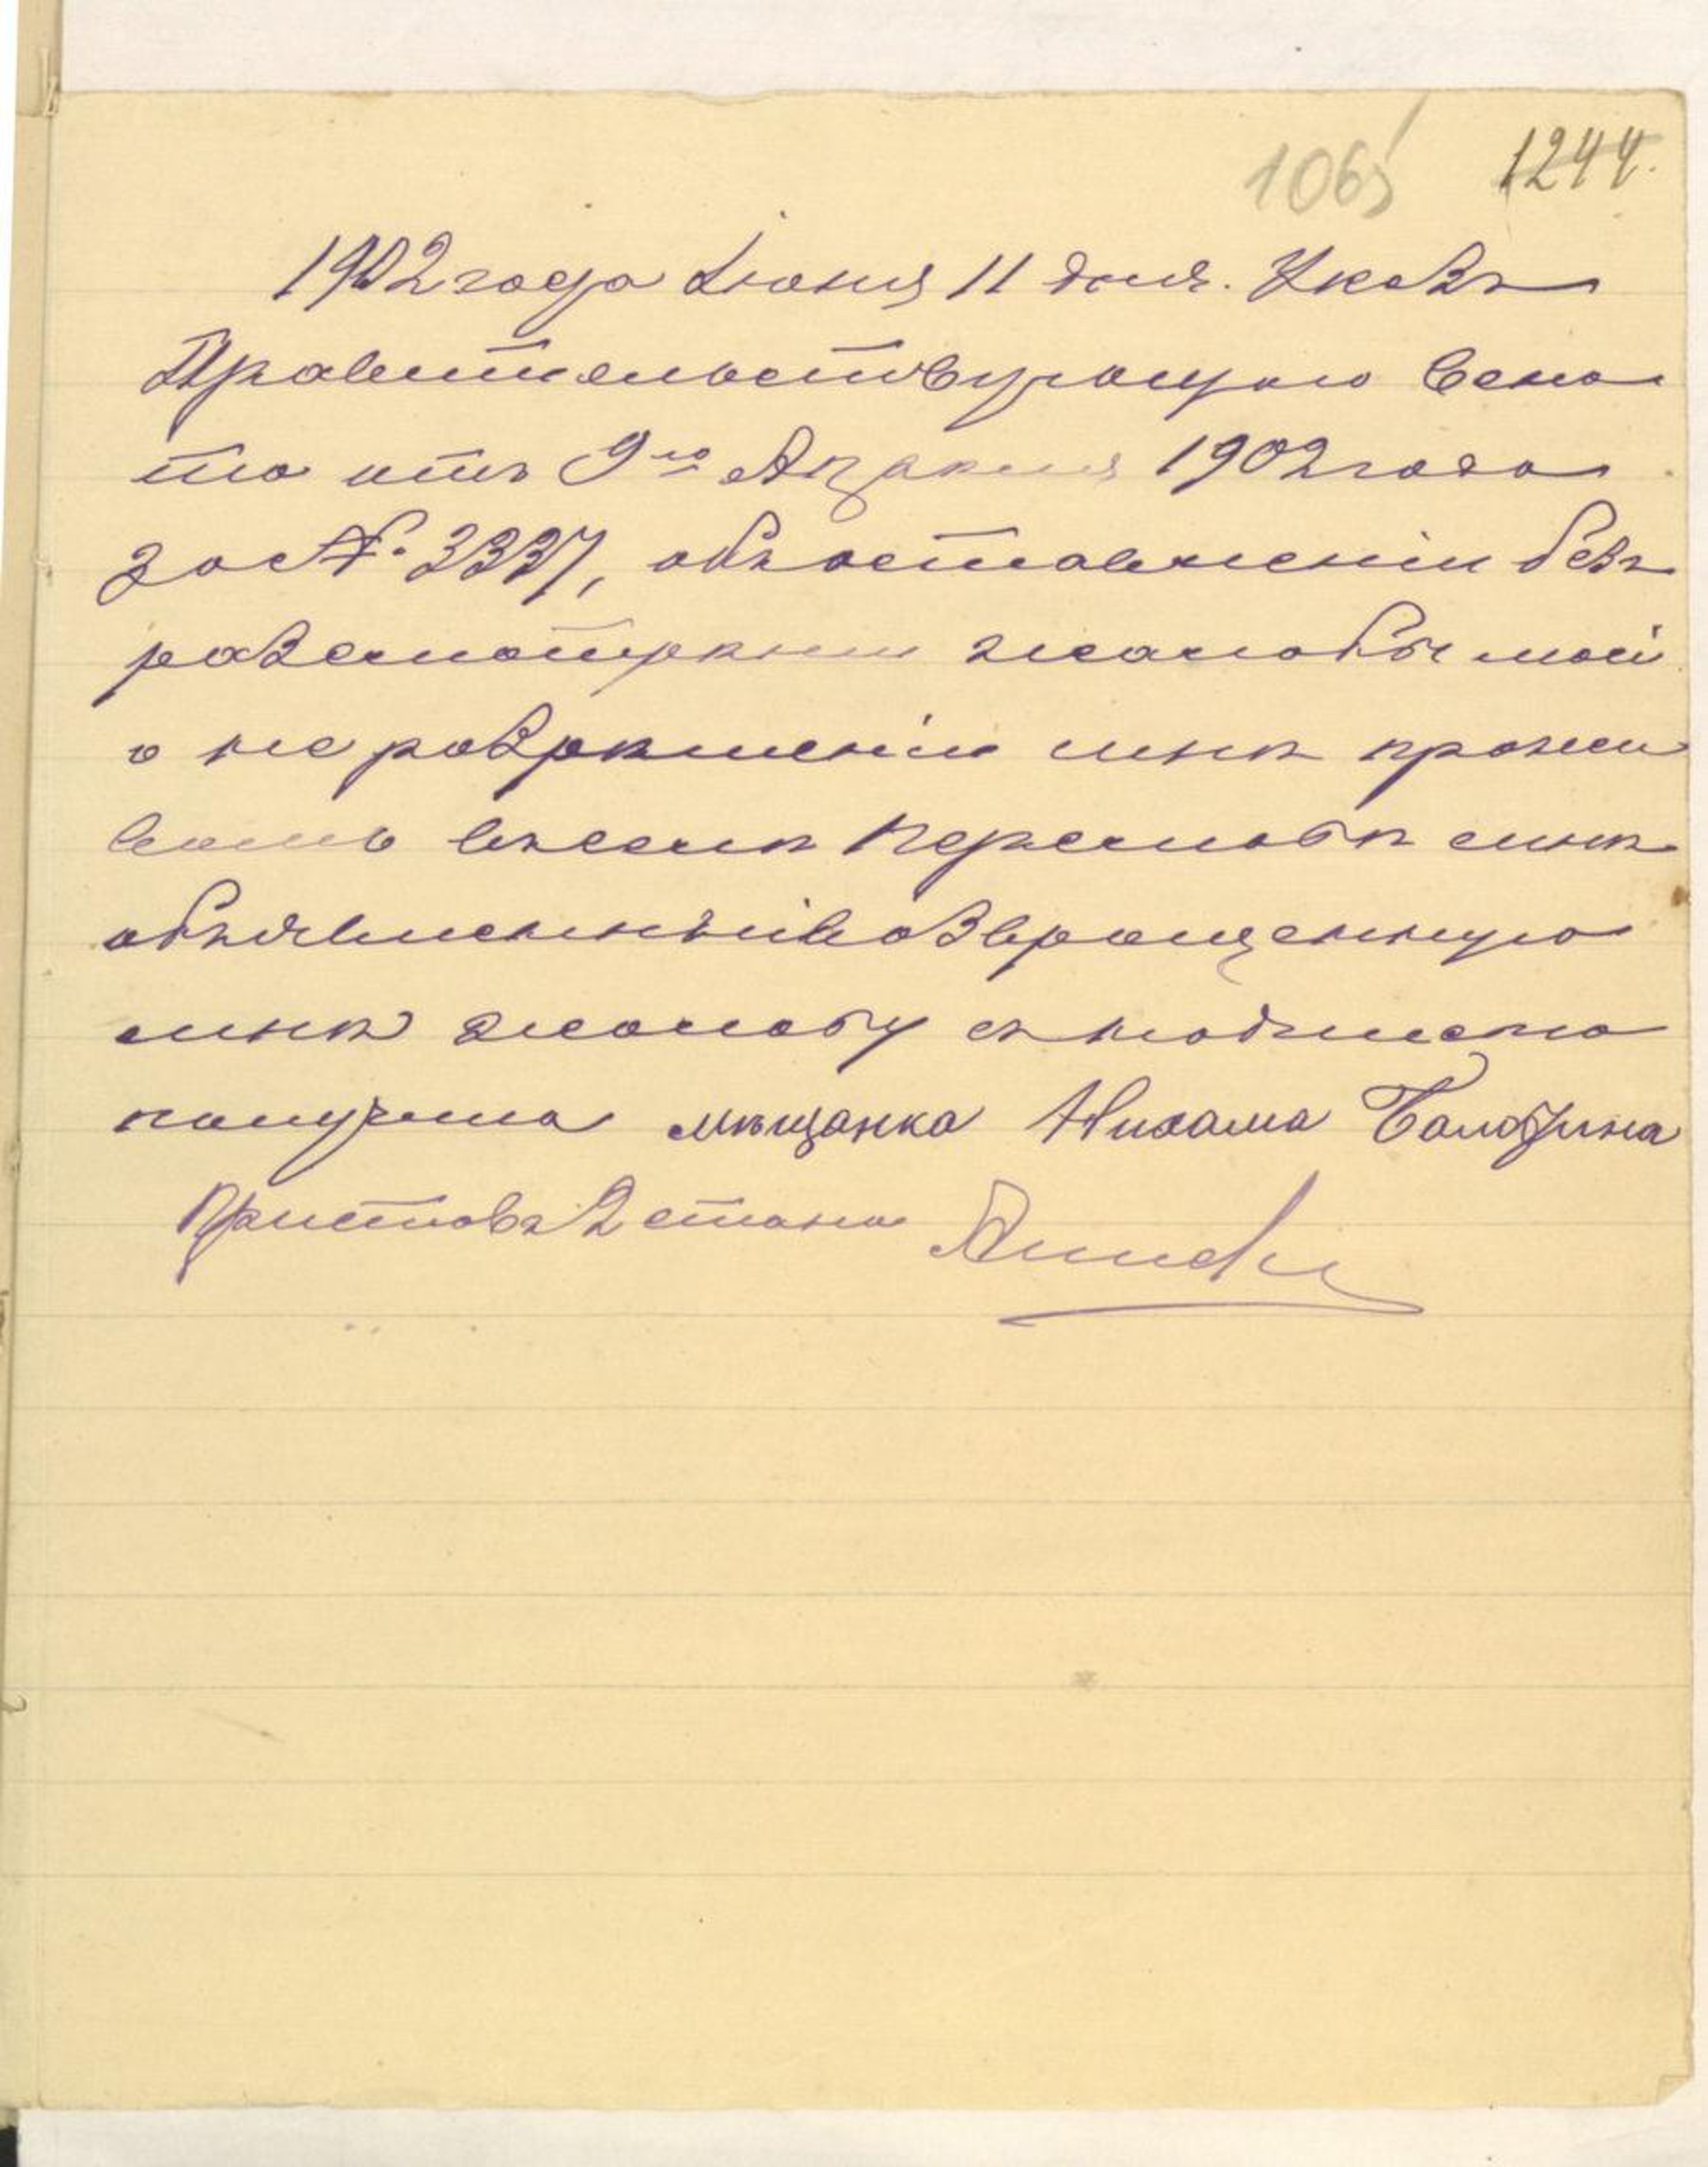 1065 1244.
1902 года Іюня 11 дня. Указъ
Правительствующаго Сена
та отъ 9го Апрѣля 1902 года
за № 3337, объ оставленіи безъ
разсмотрѣнія жалобы моей
о не разрѣшеніи мнѣ прожи
вать въ селѣ мнѣ
объявленъ и возвращенную
мнѣ жалобу съ
получила мѣщанка Нихама
Приставъ 2 стана